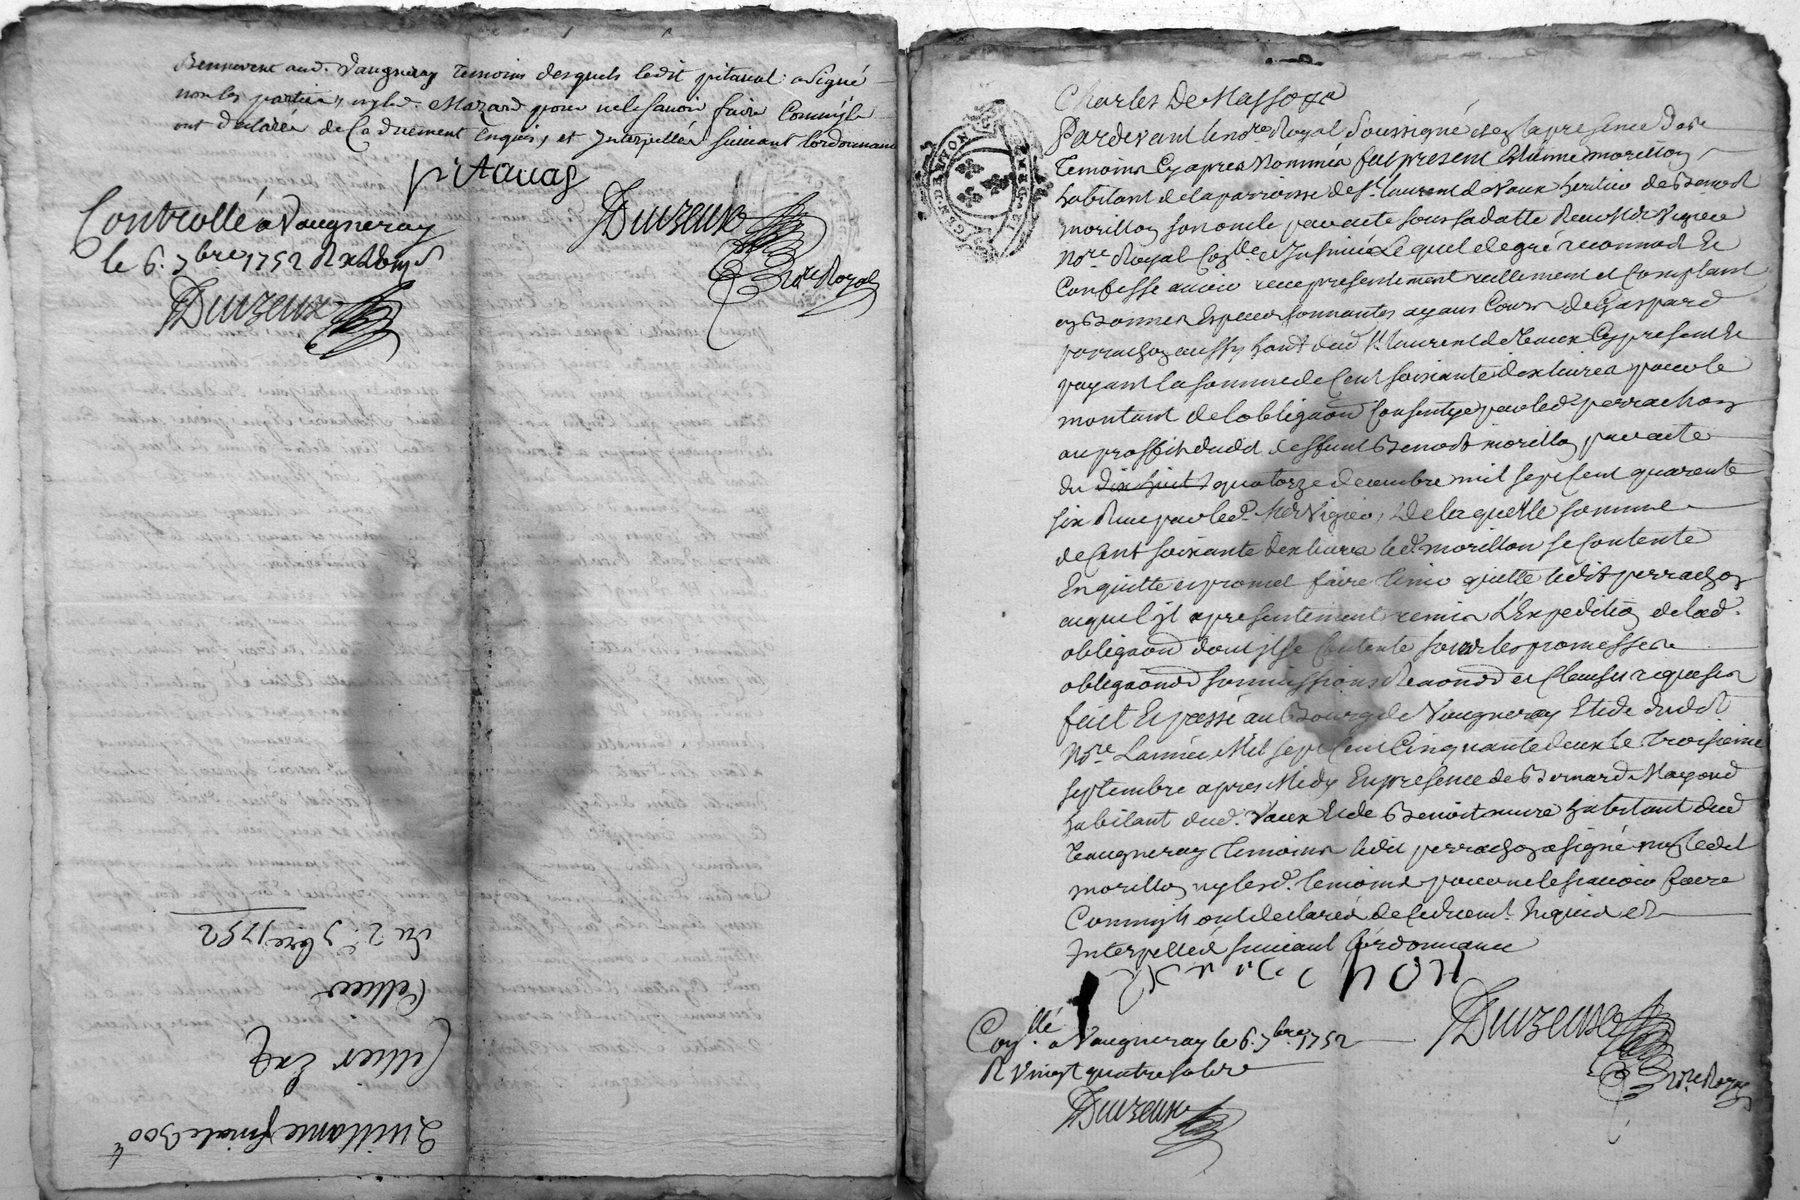 Bennevent aud. Vaugneray temoins desquels ledit pitaval a signé
non les parties ny led. Mazard pour ne le savoir faire Comm'ils
ont declarés de Ce duement Enquis, et Interpellés suivant lordonnance
pitaval
Duizeux
No.re Royal
Controllé a Vaugneray
le 6. 7bre 1752 R
Duizeux
Quittance finale 300
Cellier
du 2e 7bre 1752
Pardevant le no.re Royal soussigné et en la presence des
Temoins Cy apres Nommés fut present Etienne morillon
habitant de la parroisse de St. laurent de Vaux heritier de Benoit
morillon son oncle par acte sous sa datte Receu Me Vigier
No.re Royal Lequel de gré reconnoit Et
Confesse avoir receu presentement reellement et Comptant
en Bonnes Especes sonnantes ayans Cours de Gaspard
perrachon aussy habt dud St. laurent de Vaux Cy present Et
payant la somme de Cent soixante dix livres pour le
montant de lobligaon Consentye par led. perrachon
au proffit dudit deffunt Benoit morillon par acte
du dix huit quatorze decembre mil sept cent quarente
six Receu par led. Me Vigier, De laquelle somme
de Cent soixante dix livres led. morillon se Contente
En quitte et promet faire tenir quitte ledit perrachon
auquel il a presentement remis L'Expedition de lad.
obligaon dont il se Contente sous les promesses
obligaons soumissions Renons et Clauses requises
fait Et passé au Bourg de Vaugneray Etude dudit
No.re L'année Mil sept Cent Cinquante deux le Troisieme
septembre apres Midy En presence de Bernard Mayoud
habitant dud. Vaux Et de Benoit mure habitant dud
Vaugneray temoins ledit perrachon a signé non ledit
morillon ny lesd. temoins pour ne le scavoir faire
Comm'ils ont declarés de Ce duemt. Enquis et
Interpellés suivant L'ordonnance
Duizeux
No.re Royal
Con.llé a Vaugneray le 6. 7bre 1752
R Vingt quatre sols
Duizeux